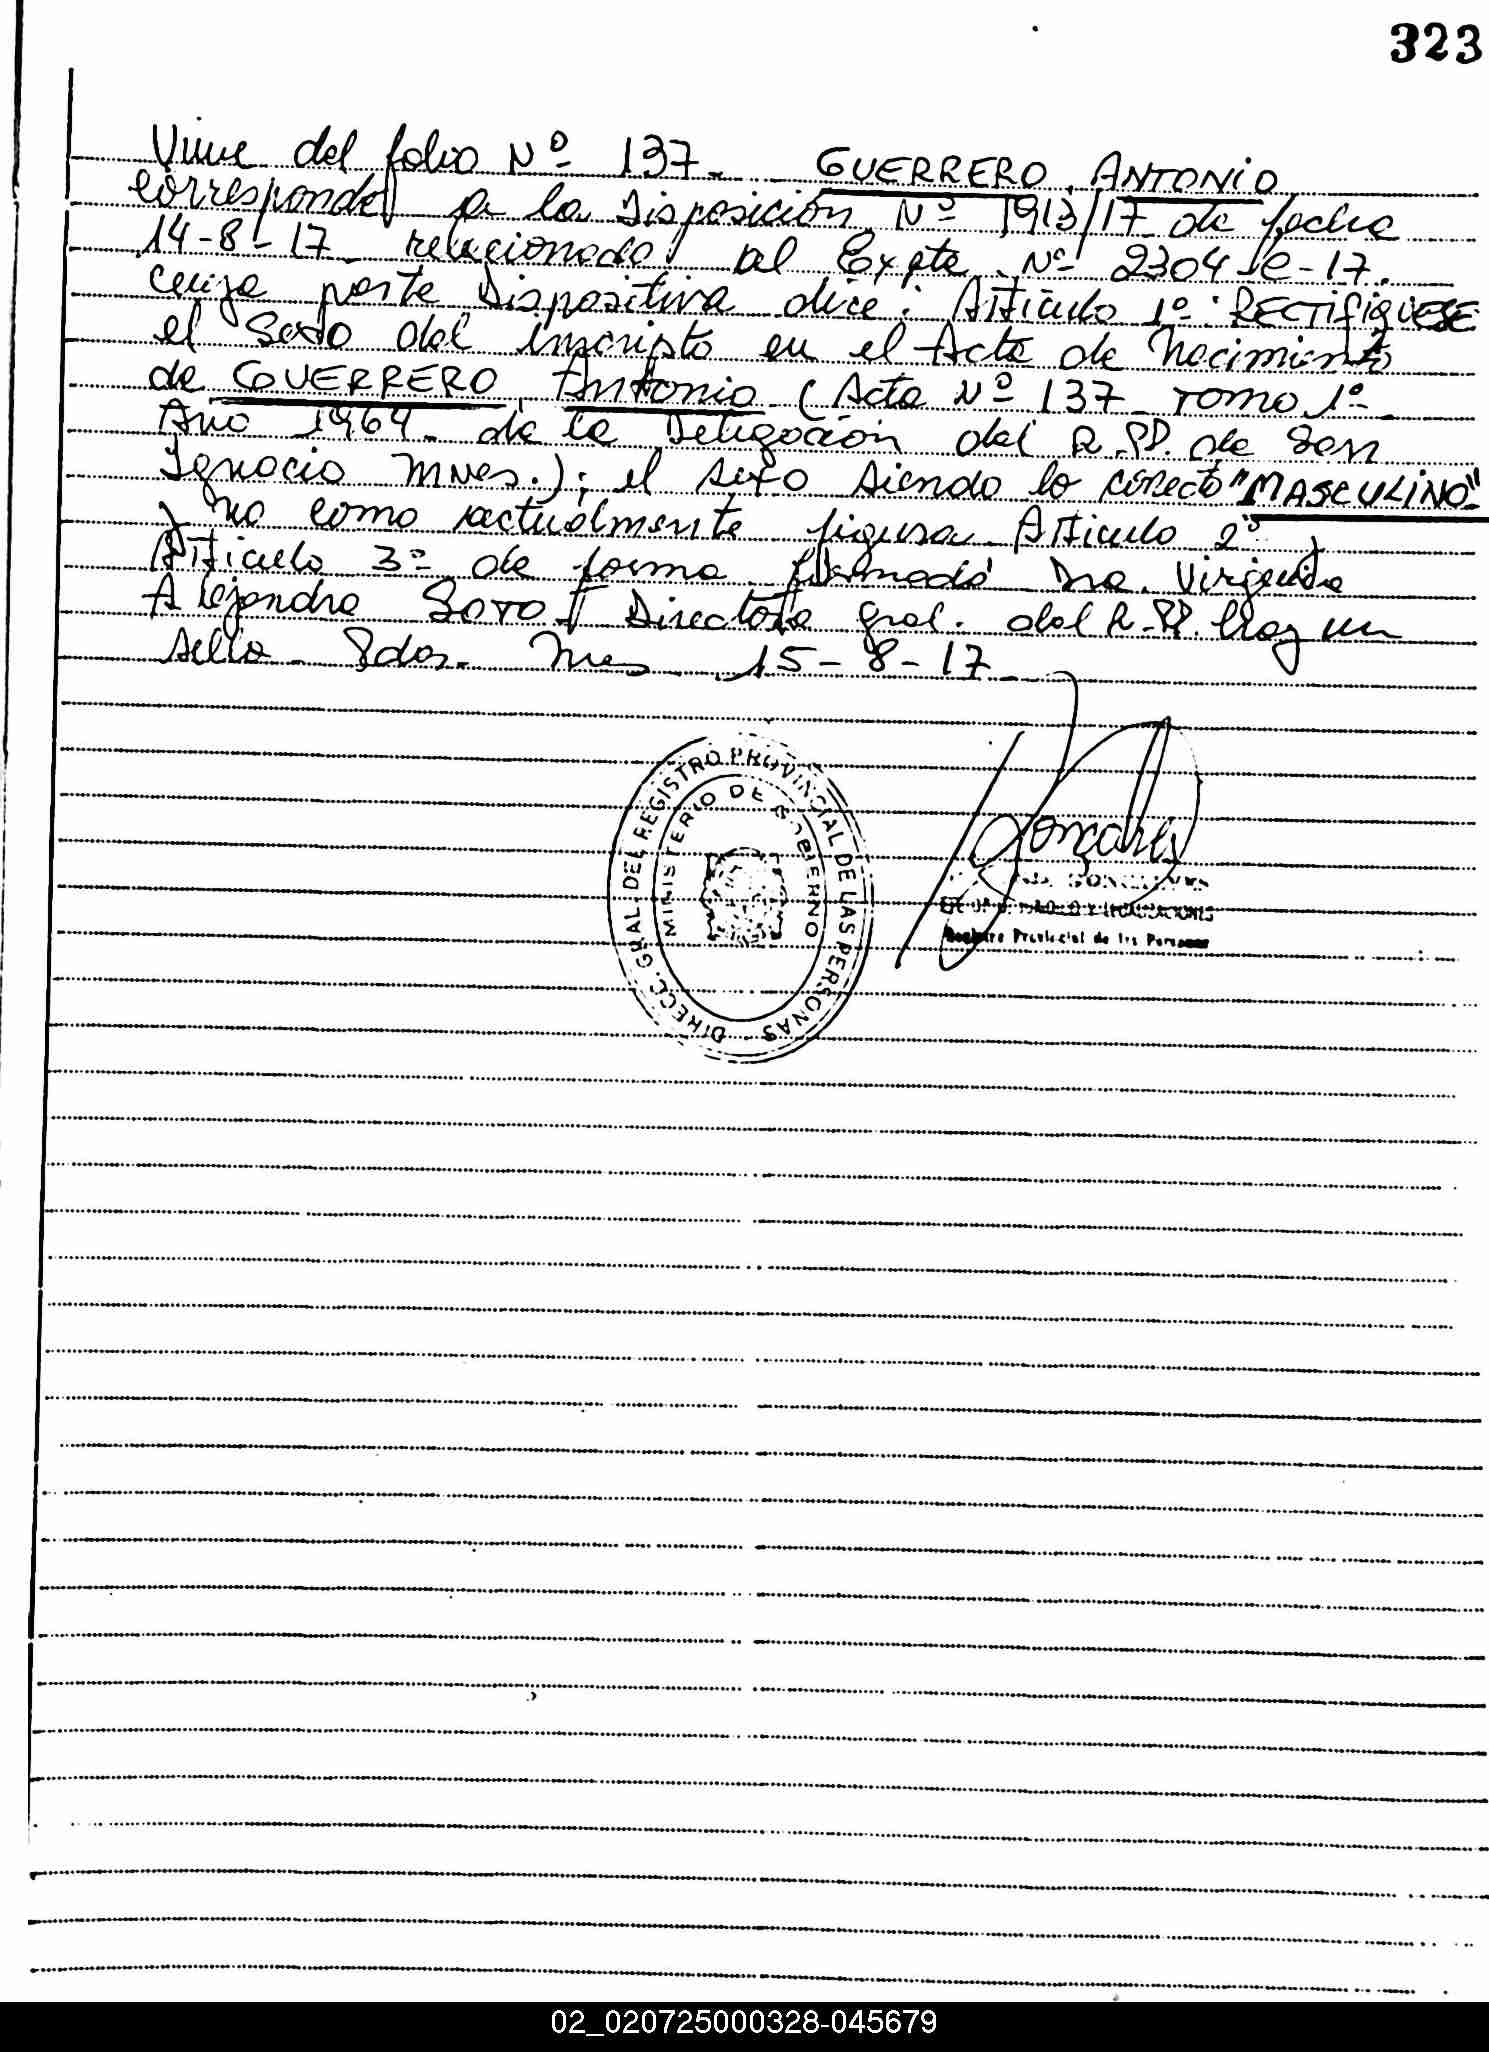 323
Viene del folio Nº 137. GUERRERO, ANTONIO
corresponde a la Disposición Nº 1913/17 de fecha
14-8-17 relacionada al Expte. Nº 2304-e-17.
cuya parte Dispositiva dice: Artículo 1º: RECTIFIQUESE
el Sexo del inscripto en el Acta de Nacimiento
de GUERRERO, Antonio (Acta Nº 137 Tomo 1º
Año 1964. de la Delegación del R.PP. de San
Ignacio Mnes.); el sexo siendo lo correcto "MASCULINO"
y no como actualmente figura. Artículo 2º y
Artículo 3º de forma firmado Dra. Virginia
Alejandra Soto Directora Gral. del R.PP. Hay un
sello. Pdas. Mnes 15-8-17
DIRECC. GRAL. DEL REGISTRO PROVINCIAL DE LAS PERSONAS
MINISTERIO DE GOBIERNO
Registro Provincial de las Personas
02_020725000328-045679